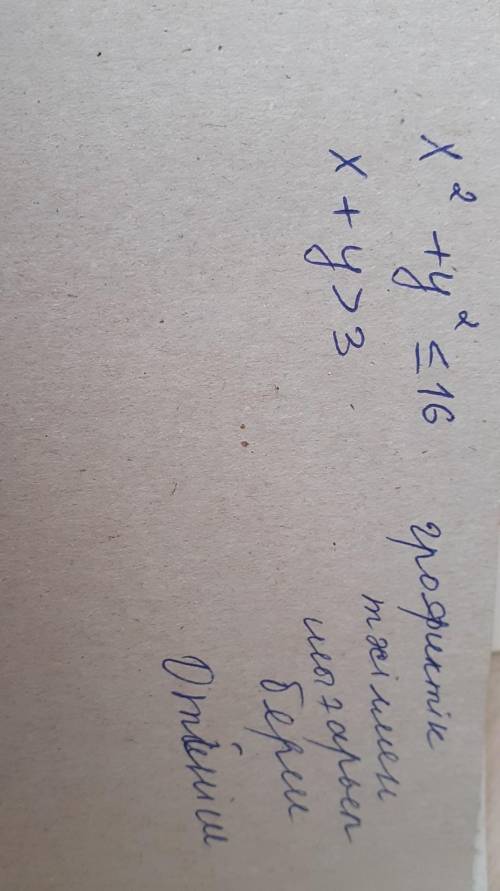 x² + y² ≤ 16
x + y > 3
графиктік
тәсілмен
шығарып
берш
Өтініш